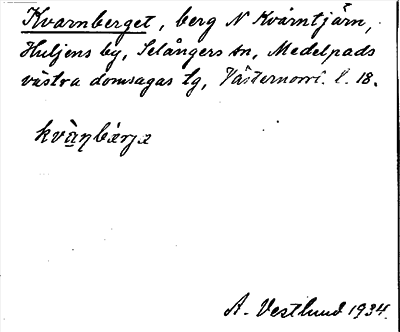 Kvarnberget, berg N Kvarntjärn,
Huljens by, Selångers sn, Medelpads
västra domsagas tg, Västernorrl. l. 18.
kvàṇbärjə
A. Vestlund 1934.